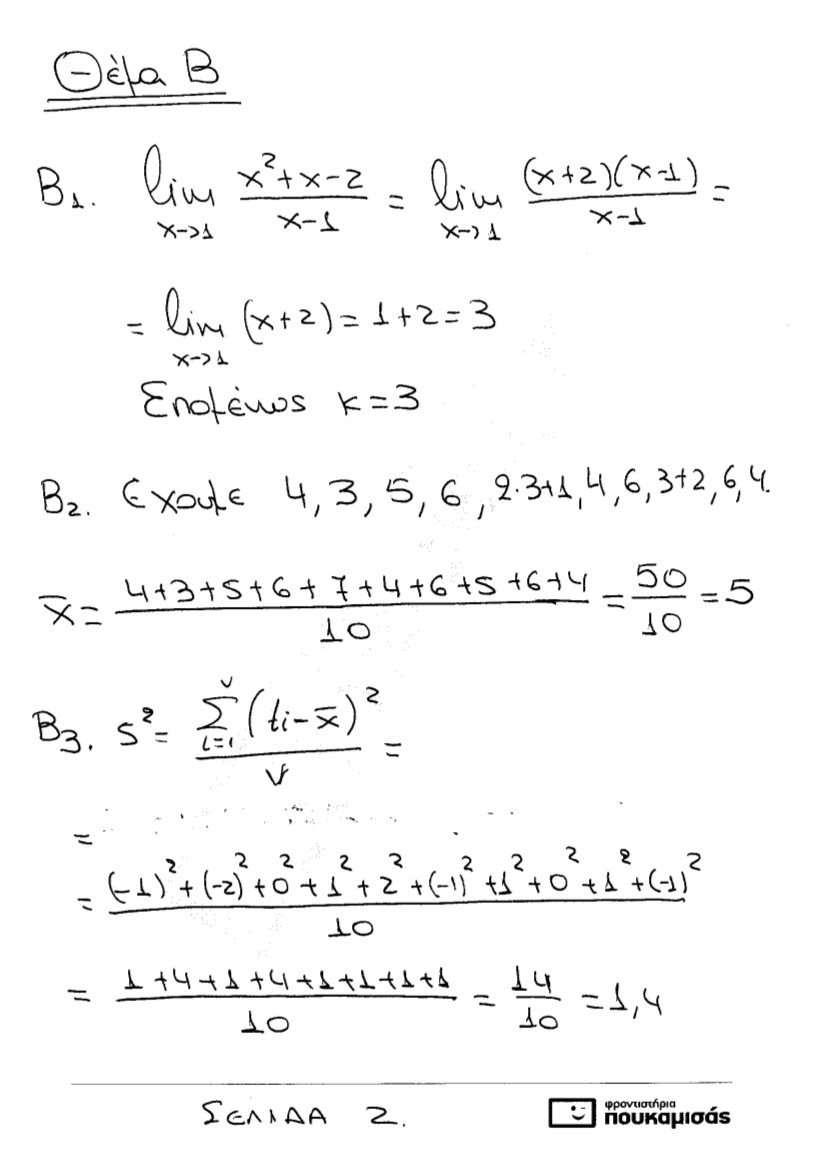 Θέμα Β
B1. lim x->1 (x²+x-2)/(x-1) = lim x->1 ((x+2)(x-1))/(x-1) =
= lim x->1 (x+2) = 1+2 = 3
Επομένως κ=3
B2. Έχουμε 4, 3, 5, 6, 2·3+1, 4, 6, 3+2, 6, 4.
x̄ = (4+3+5+6+7+4+6+5+6+4)/10 = 50/10 = 5
B3. s² = (Σ i=1 ν (ti-x̄)²)/ν =
=
= ((-1)²+(-2)²+0²+1²+2²+(-1)²+1²+0²+1²+(-1)²)/10
= (1+4+1+4+1+1+1+1)/10 = 14/10 = 1,4
ΣΕΛΙΔΑ 2.
φροντιστήρια
πουκαμισάς